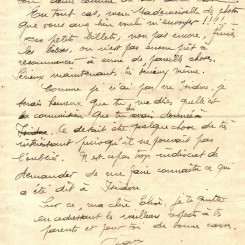 En tout cas, mon Mademoiselle de photo
que vous an bien voulu m'envoyer !!!!
ces petits billets, non pas encore, finies
les Pâtres, on n'est pas encore prêt à
recommencer à semer de pareilles choses.
maintenant, tu même.
Comme je n'ai pas vu Isidore, je
serais heureux que tu me dises quelle est
la commission que tu avais donnée à
Isidore. Ce devait être quelque chose de très
intéressant puisqu'il ne pouvait pas
l'oublier. N'est-ce pas trop indiscret de
demander de me faire connaître ce qui
a été dit à Isidore
Sur ce, ma chère Elisa, je te quitte
en adressant les meilleurs respects à tes
parents et pour toi de bons